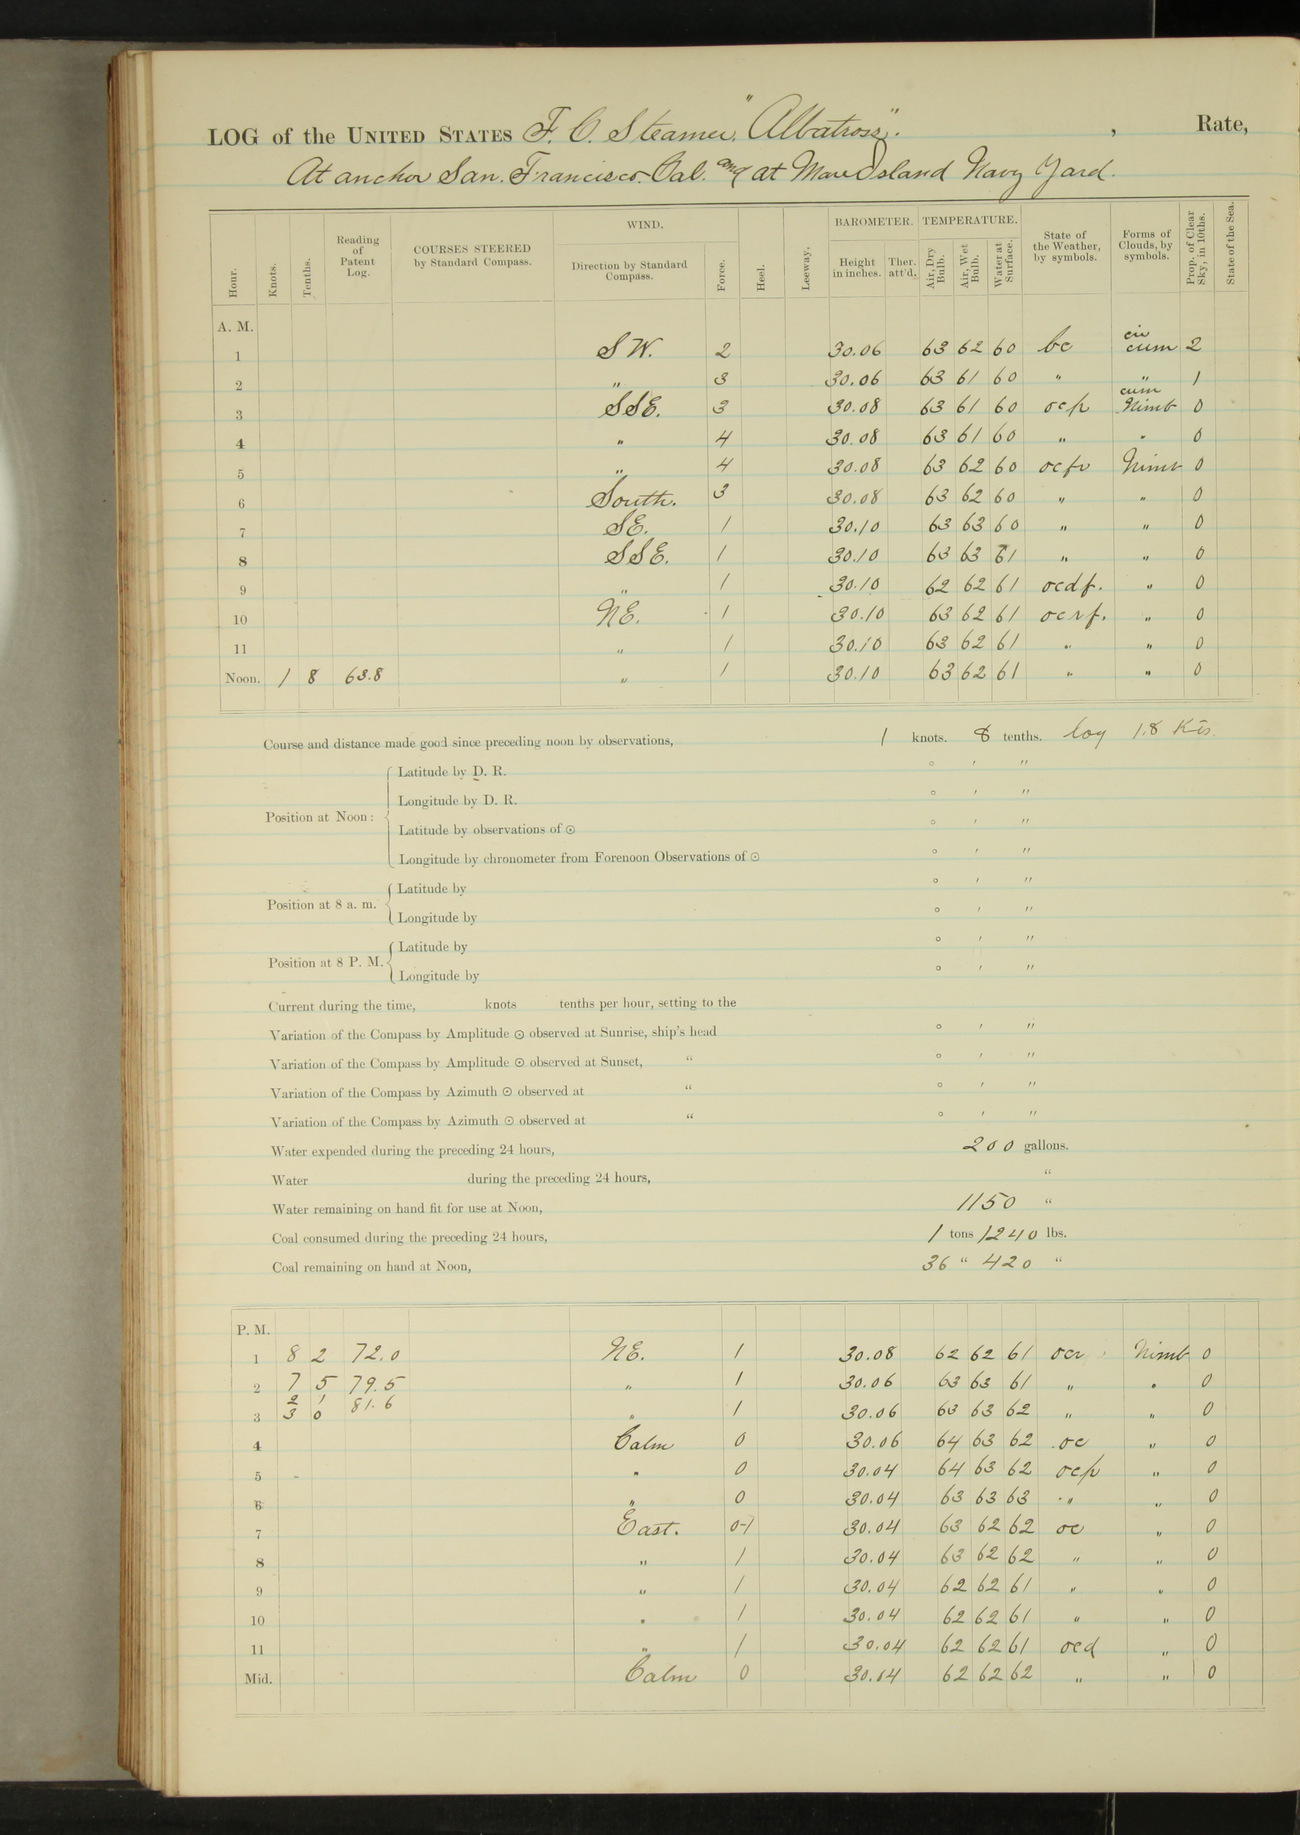 LOG of the UNITED STATES F. C. Steamer "Albatross". , Rate,
At anchor San. Francisco. Cal. and at Mare Island Navy Yard.
Hour. Knots. Tenths. Reading of Patent Log. COURSES STEERED by Standard Compass. WIND. Direction by Standard Compass. Force. Heel. Leeway. BAROMETER. Height in inches. Ther. att'd. TEMPERATURE. Air, Dry Bulb. Air, Wet Bulb. Water at Surface. State of the Weather, by symbols. Forms of Clouds, by symbols. Prop. of Clear Sky, in 10ths. State of the Sea.
A. M.
1 SW. 2 30.06 63 62 60 bc cir cum 2
2 " 3 30.06 63 61 60 " " 1
3 SSE. 3 30.08 63 61 60 ocp cum Nimb 0
4 " 4 30.08 63 61 60 " " 0
5 " 4 30.08 63 62 60 Nimb 0
6 South. 3 30.08 63 62 60 " " 0
7 SE. 1 30.10 63 63 60 " " 0
8 SSE. 1 30.10 63 63 61 " " 0
9 " 1 30.10 62 62 61 ocdf. " 0
10 NE. 1 30.10 63 62 61 ocrf. " 0
11 " 1 30.10 63 62 61 " " 0
Noon. 1 8 63.8 " 1 30.10 63 62 61 " " 0
Course and distance made good since preceding noon by observations, 1 knots. 8 tenths. log 1.8 Kts.
Position at Noon: Latitude by D. R. ° ′ ″
Longitude by D. R. ° ′ ″
Latitude by observations of ☉ ° ′ ″
Longitude by chronometer from Forenoon Observations of ☉ ° ′ ″
Position at 8 a. m. Latitude by ° ′ ″
Longitude by ° ′ ″
Position at 8 P. M. Latitude by ° ′ ″
Longitude by ° ′ ″
Current during the time, knots tenths per hour, setting to the
Variation of the Compass by Amplitude ☉ observed at Sunrise, ship's head ° ′ ″
Variation of the Compass by Amplitude ☉ observed at Sunset, " ° ′ ″
Variation of the Compass by Azimuth ☉ observed at " ° ′ ″
Variation of the Compass by Azimuth ☉ observed at " ° ′ ″
Water expended during the preceding 24 hours, 200 gallons.
Water during the preceding 24 hours, "
Water remaining on hand fit for use at Noon, 1150 "
Coal consumed during the preceding 24 hours, 1 tons 1240 lbs.
Coal remaining on hand at Noon, 36 " 420 "
P. M.
1 8 2 72.0 NE. 1 30.08 62 62 61 ocr Nimb 0
2 7 5 79.5 " 1 30.06 63 63 61 " " 0
2 1 81.6
3 3 0 " 1 30.06 63 63 62 " " 0
4 Calm 0 30.06 64 63 62 oc " 0
5 " 0 30.04 64 63 62 ocp " 0
6 " 0 30.04 63 63 63 " " 0
7 East. 0-1 30.04 63 62 62 oc " 0
8 " 1 30.04 63 62 62 " " 0
9 " 1 30.04 62 62 61 " " 0
10 " 1 30.04 62 62 61 " " 0
11 " 1 30.04 62 62 61 ocd " 0
Mid. Calm 0 30.04 62 62 62 " " 0